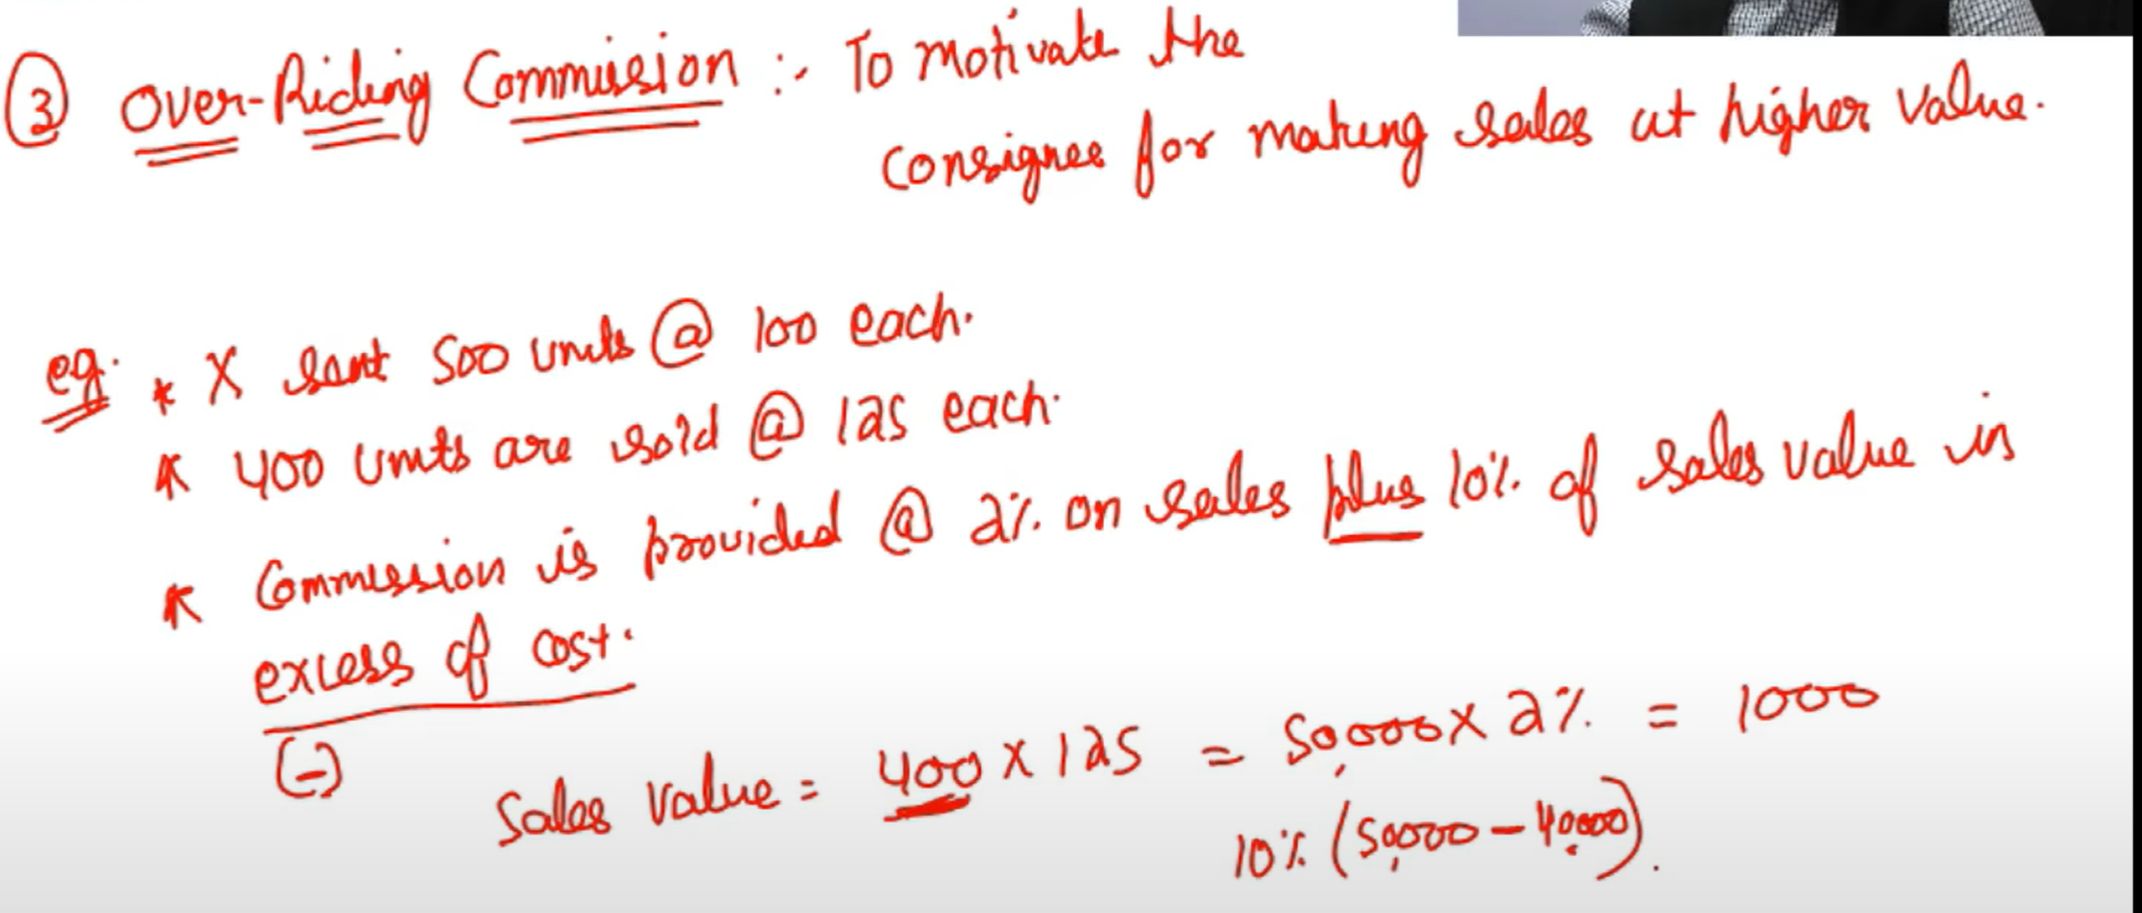 ③ Over-Riding Commission :- To motivate the
consignee for making sales at higher value.
eg. * X sent 500 units @ 100 each.
* 400 units are sold @ 125 each.
* Commission is provided @ 2% on sales plus 10% of sales value in
excess of cost.
(-)
Sales Value = 400 x 125 = 50,000 x 2% = 1000
10% (50,000 - 40,000).